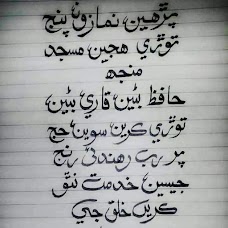 پڙهين نمازون پنج
توڙي هجين مسجد
منجهه
حافظ بڻين قاري بڻين
توڙي ڪرين سوين حج
پر رب رهندئي رنج
جيسين خدمت نٿو
ڪرين خلق جي